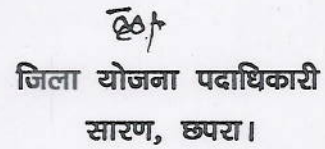 जिला योजना पदाधिकारी
सारण, छपरा।